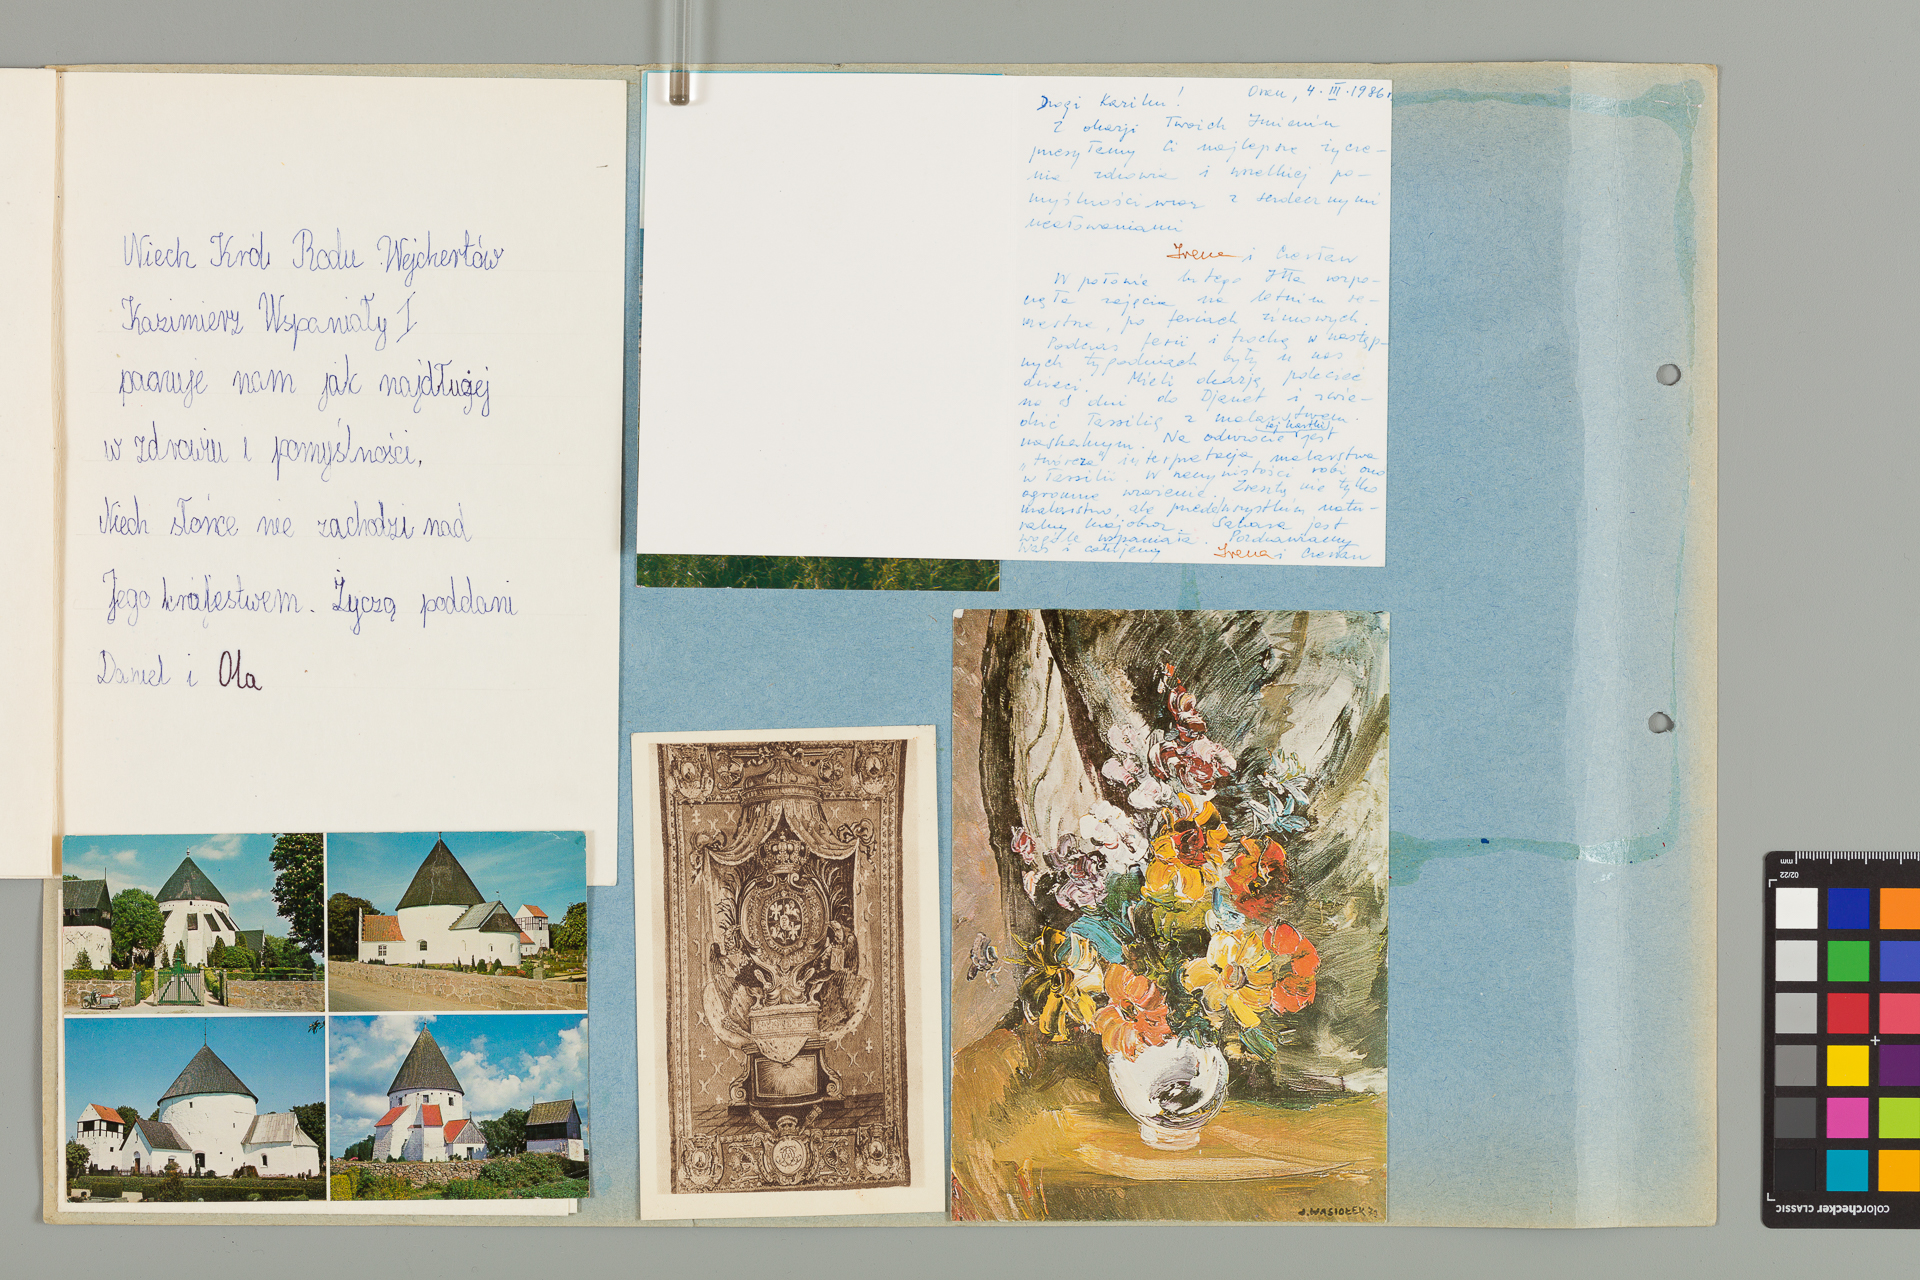 Niech Król Rodu Wejchertów
Kazimierz Wspaniały I
panuje nam jak najdłużej
w zdrowiu i pomyślności,
Niech słońce nie zachodzi nad
Jego królestwem. Życzą poddani
Daniel i Ola
Oran, 4.III.1986r.
Drogi Kaziku!
Z okazji Twoich Imienin
przesyłamy Ci najlepsze życze-
nia zdrowia i wszelkiej po-
myślności wraz z serdecznymi
ucałowaniami
Irena i Czesław
W połowie lutego Itta rozpo-
częła zajęcia na letnim se-
mestrze, po feriach zimowych.
Podczas ferii i trochę w następ-
nych tygodniach były u nas
dzieci. Mieli okazję polecieć
na 8 dni do Djanet i zwie-
dzić Tassilię z malarstwem
naskalnym. Na odwrocie tej kartki jest
"twórcza" interpretacja malarstwa
w Tassilii. W rzeczywistości robi ono
ogromne wrażenie. Zresztą nie tylko
malarstwo, ale przedewszystkim natu-
ralny krajobraz. Sahara jest
wogóle wspaniała. Pozdrawiamy
Was i całujemy Irena i Czesław
J. WASIOŁEK
mm
02/22
colorchecker CLASSIC